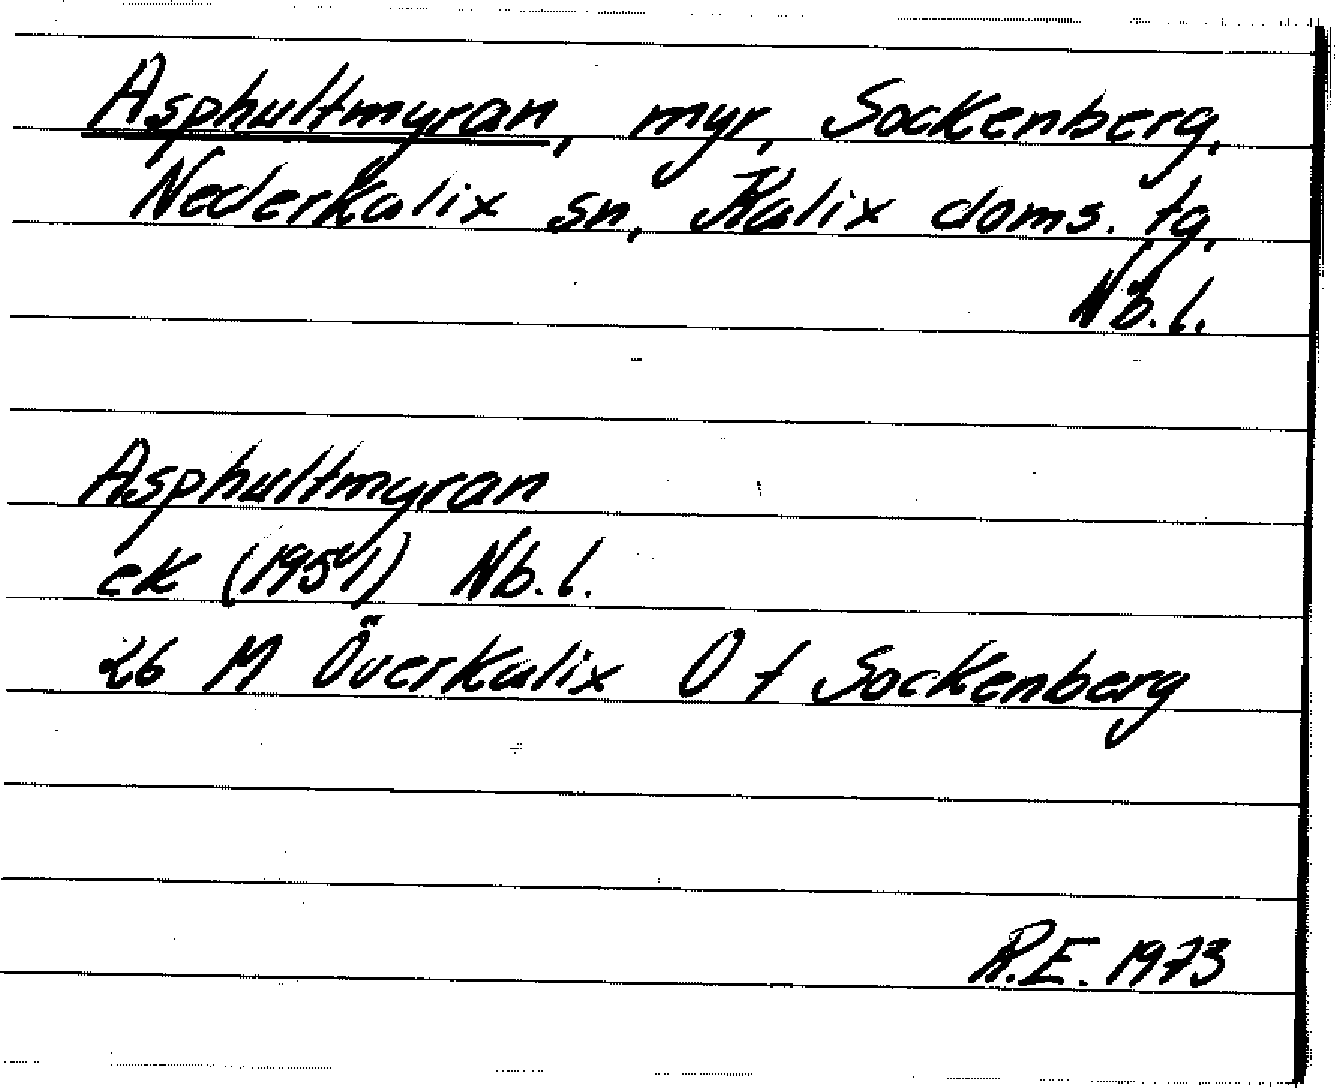 Asphultmyran, myr, Sockenberg,
Nederkalix sn, Kalix doms. tg,
Nb. l.
Asphultmyran
ek (1951) Nb. l.
26 M Överkalix O f Sockenberg
R.E. 1973